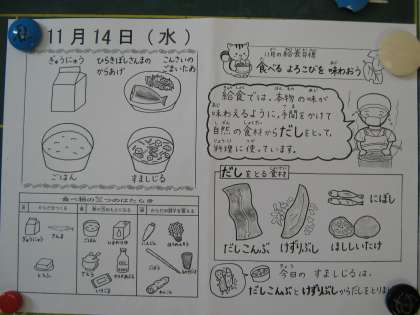 11月14日(水)
ぎゅうにゅう
からあげ
こんさいの
ごまいため
ごはん
すましじる
食べ物の三つのはたらき
ぎゅうにゅう
とうふ
ごはん
にんじん
11月の給食目標
食べる よろこびを 味わおう
給食では、本物の味が
味わえるように、手間をかけて
自然の食材からだしをとって、
料理に使っています。
だしをとる食材
にぼし
だしこんぶ
けずりぶし
ほししいたけ
今日の すましじるは、
だしこんぶとけずりぶしからだしをとりました